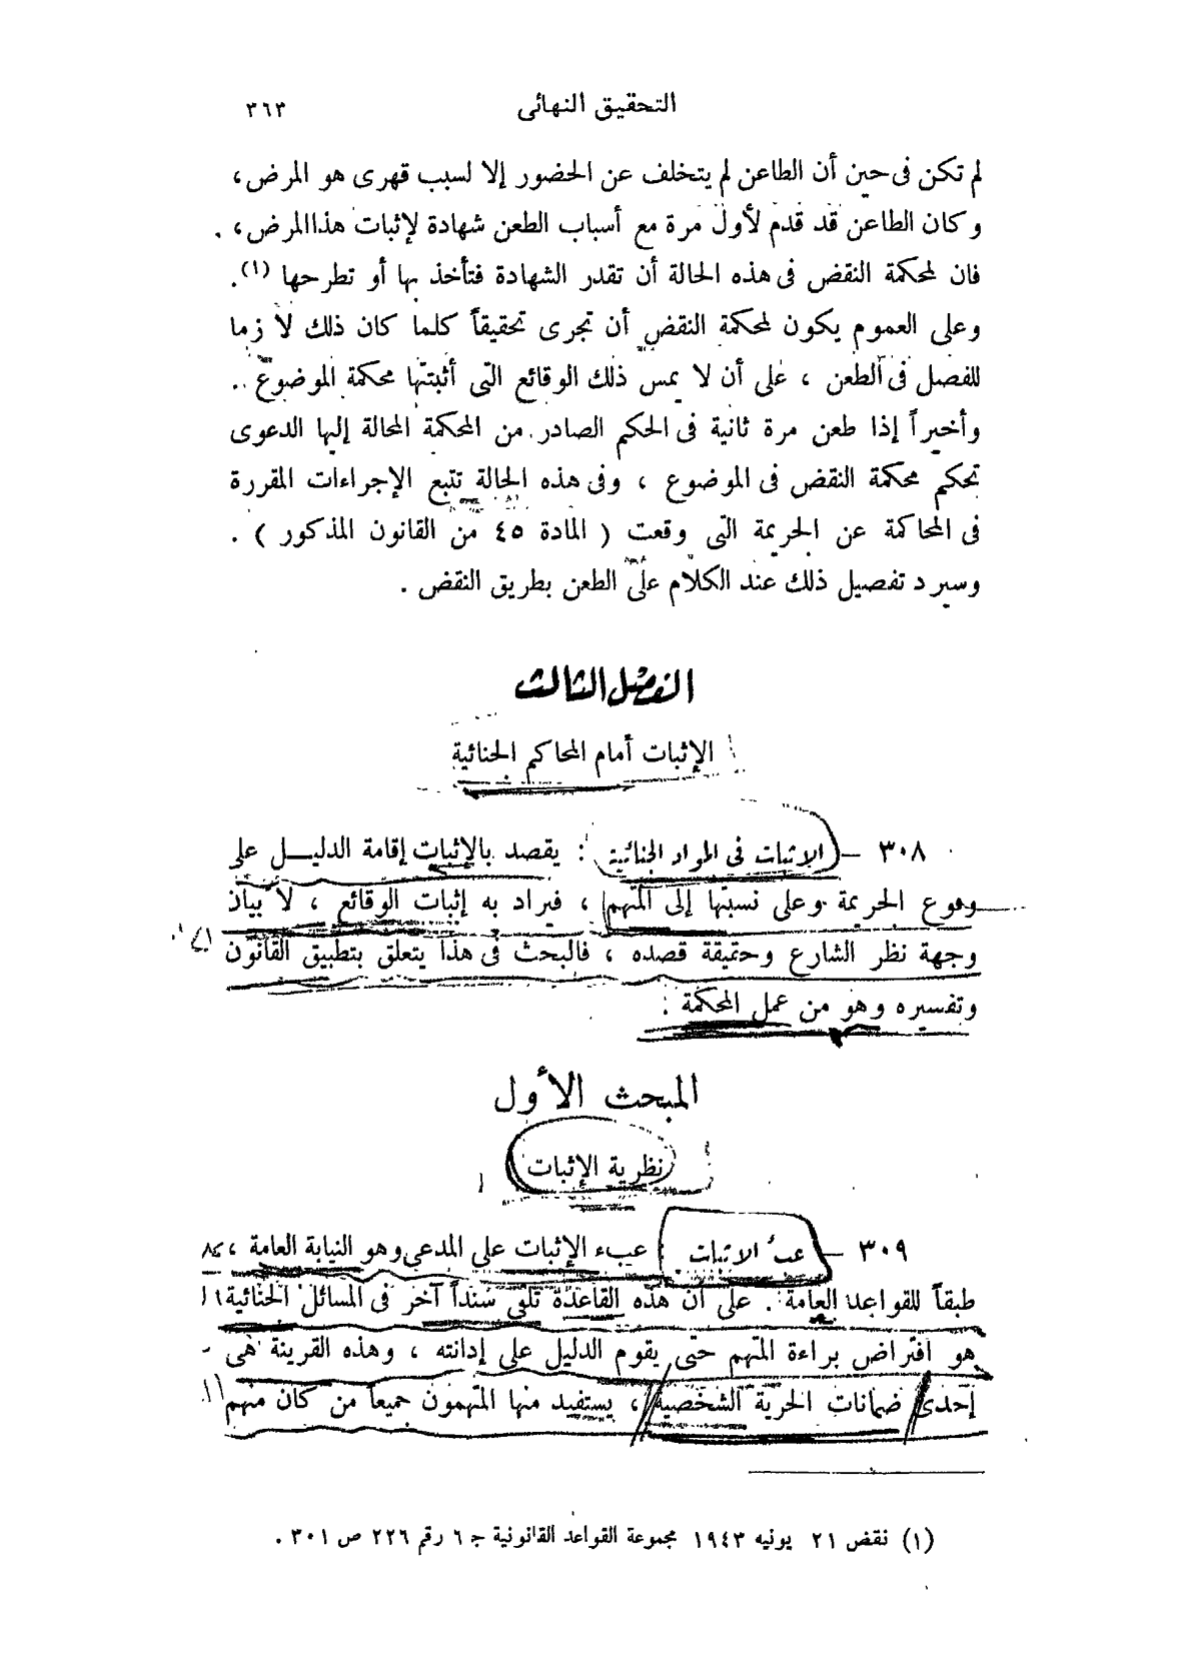 التحقيق النهائى ٣٦٣
لم تكن فى حين أن الطاعن لم يتخلف عن الحضور إلا لسبب قهرى هو المرض،
وكان الطاعن قد قدم لأول مرة مع أسباب الطعن شهادة لإثبات هذا المرض،
فان لمحكمة النقض فى هذه الحالة أن تقدر الشهادة فتأخذ بها أو تطرحها (١).
وعلى العموم يكون لمحكمة النقض أن تجرى تحقيقاً كلما كان ذلك لازما
للفصل فى الطعن ، على أن لا يمس ذلك الوقائع التى أثبتتها محكمة الموضوع .
وأخيراً إذا طعن مرة ثانية فى الحكم الصادر من المحكمة المحالة إليها الدعوى
تحكم محكمة النقض فى الموضوع ، وفى هذه الحالة تتبع الإجراءات المقررة
فى المحاكمة عن الجريمة التى وقعت ( المادة ٤٥ من القانون المذكور ) .
وسيرد تفصيل ذلك عند الكلام على الطعن بطريق النقض .
الفصل الثالث
الإثبات أمام المحاكم الجنائية
٣٠٨ – الاثبات فى المواد الجنائية : يقصد بالإثبات إقامة الدليل على
وقوع الجريمة وعلى نسبتها إلى المتهم ، فيراد به إثبات الوقائع ، لا بيان
وجهة نظر الشارع وحقيقة قصده ، فالبحث فى هذا يتعلق بتطبيق القانون
وتفسيره وهو من عمل المحكمة .
المبحث الأول
نظرية الإثبات
٣٠٩ – عبء الاثبات : عبء الإثبات على المدعى وهو النيابة العامة ،
طبقاً للقواعد العامة . على أن هذه القاعدة تلقى سنداً آخر فى المسائل الجنائية
هو افتراض براءة المتهم حتى يقوم الدليل على إدانته ، وهذه القرينة هى
إحدى ضمانات الحرية الشخصية ، يستفيد منها المتهمون جميعاً من كان منهم
(١) نقض ٢١ يونيه ١٩٤٣ مجموعة القواعد القانونية ج ٦ رقم ٢٢٦ ص ٣٠١ .